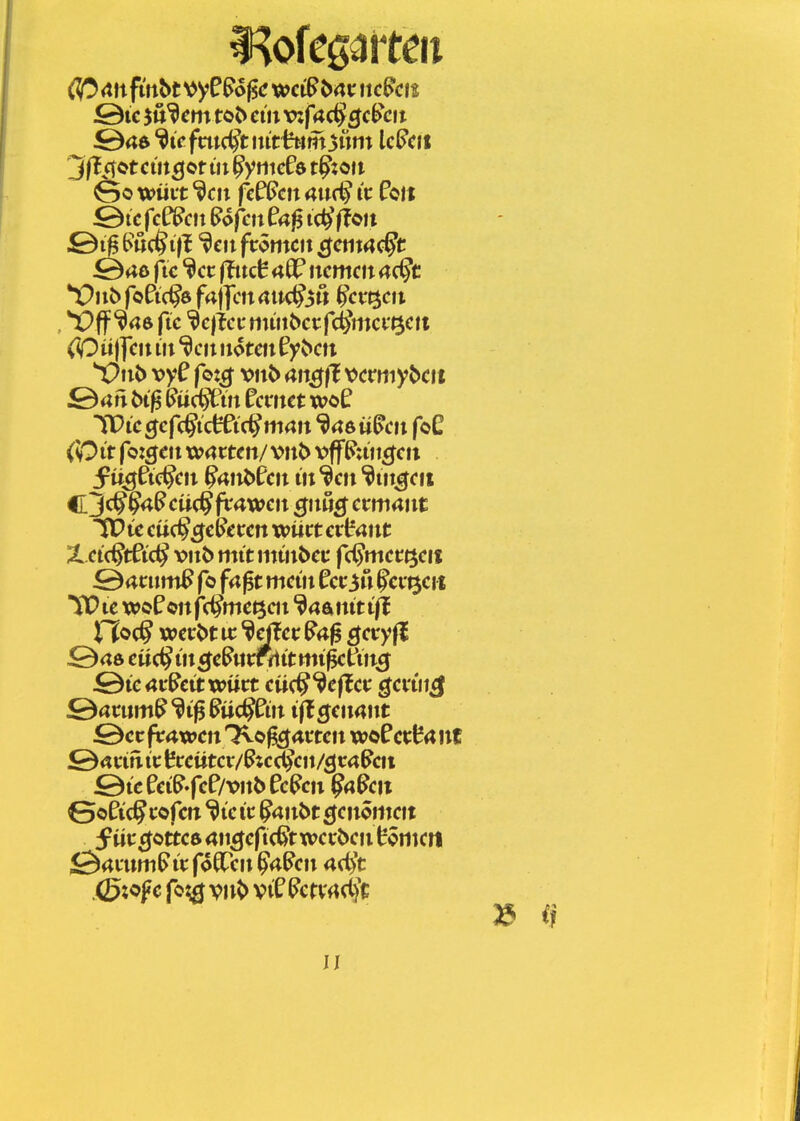 Rosegarten
Man findt vyl böße weiber neben
Die zů dem tod ein vrsach geben
Das die frucht nit kum zům leben
Ist got ein gor in hymels thron
So würt den selben auch ir lon
Die selben bösen laß ich ston
Diß bůch ist den fromen gemacht
Das sie der stuck all nemen acht
Vnd solichs fassen auch zů hertzen
Vff das sie dester minder schmertzen
Müssen in den nöten lyden
Vnd vyl sorg vnd angst vermyden
Dañ diß büchlin lernet wol
Wie geschicklich man das üben sol
Mit sorgen warten/ vnd vff bringen
Füglichen handlen in den dingen
Ich hab eüch frawen gnůg ermant
Wie eüch geberen würt erkant
Leichtlich vnd mit minder schmertzen
Darumb so faßt mein ler zů hertzen
Wie wol on schmetzen das nit ist
Noch werdt ir dester baß geryst
Das eüch in geburt nit mißeling
Die arbeit würt eüch dester gering
Darumb diß büchlin ist genant
Der frawen Roßgarten wol erkant
Dariñ ir kreüter/ brechen/ graben
Die leib-sel/ vnd leben haben
Solich rosen die ir handt genomen
Für gottes angesicht werden komen
Darumb ir söllen haben acht
Große sorg vnd vil betracht
B ij
11